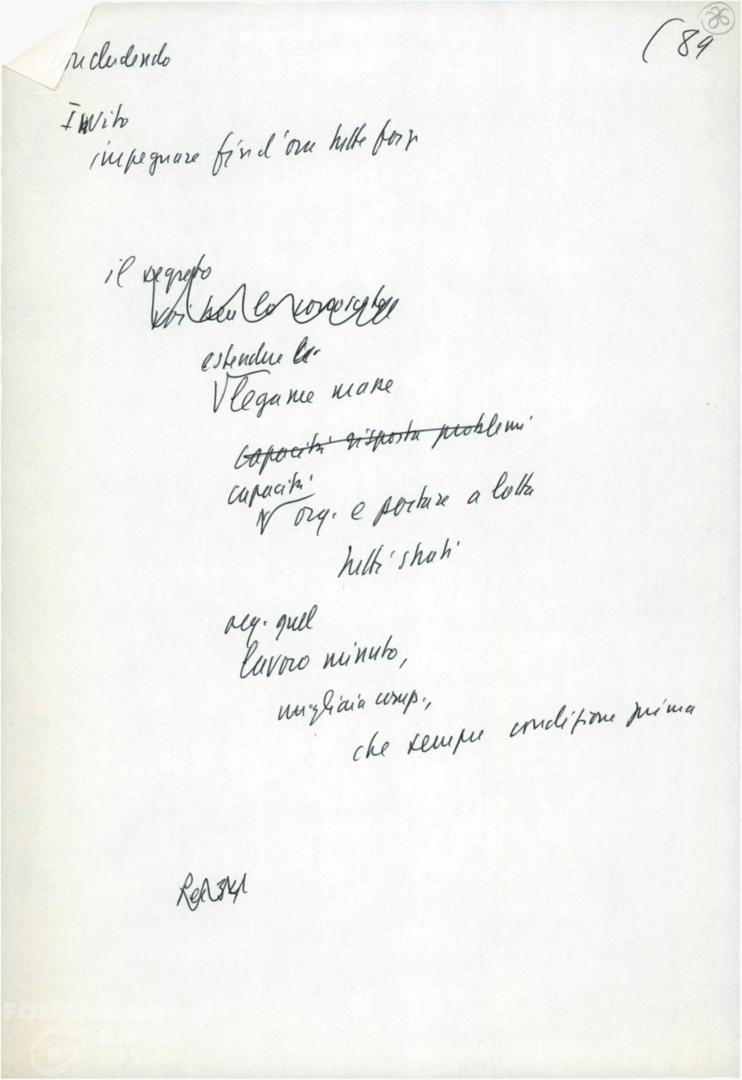 86
(89
concludendo
Invito
impegnare fin d'ora tutte forze
il segreto
estendere la
legame masse
capacità risposta problemi
capacità
org. e portare a lotta
tutti strati
quel
lavoro minuto,
migliaia comp.,
che sempre condizione prima